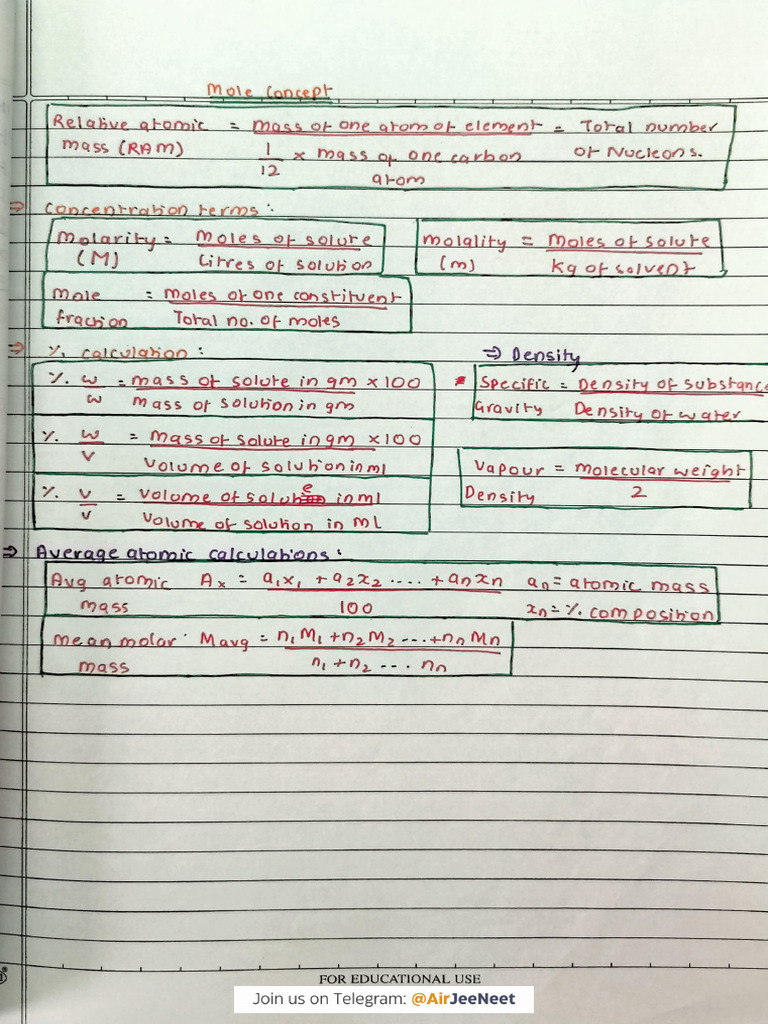 Mole Concept
Relative atomic = mass of one atom of element = Total number
mass (RAM) 1/12 × mass of one carbon atom of Nucleons.
⇒ Concentration terms:
Molarity = Moles of solute
(M) Litres of solution
molality = Moles of solute
(m) Kg of solvent
Mole = Moles of one constituent
fraction Total no. of moles
⇒ % calculation:
% w = mass of solute in gm × 100
w mass of solution in gm
% w = mass of solute in gm × 100
v volume of solution in ml
% v = volume of solute in ml
v volume of solution in ML
⇒ Density
* Specific = Density of substance
Gravity Density of water
Vapour = molecular weight
Density 2
⇒ Average atomic calculations:
Avg atomic Ax = a₁x₁ + a₂x₂ .... + anxn an = atomic mass
mass 100 xn = % composition
mean molar Mavg = n₁M₁ + n₂M₂ ... + nnMn
mass n₁ + n₂ ... nn
FOR EDUCATIONAL USE
Join us on Telegram: @AirJeeNeet